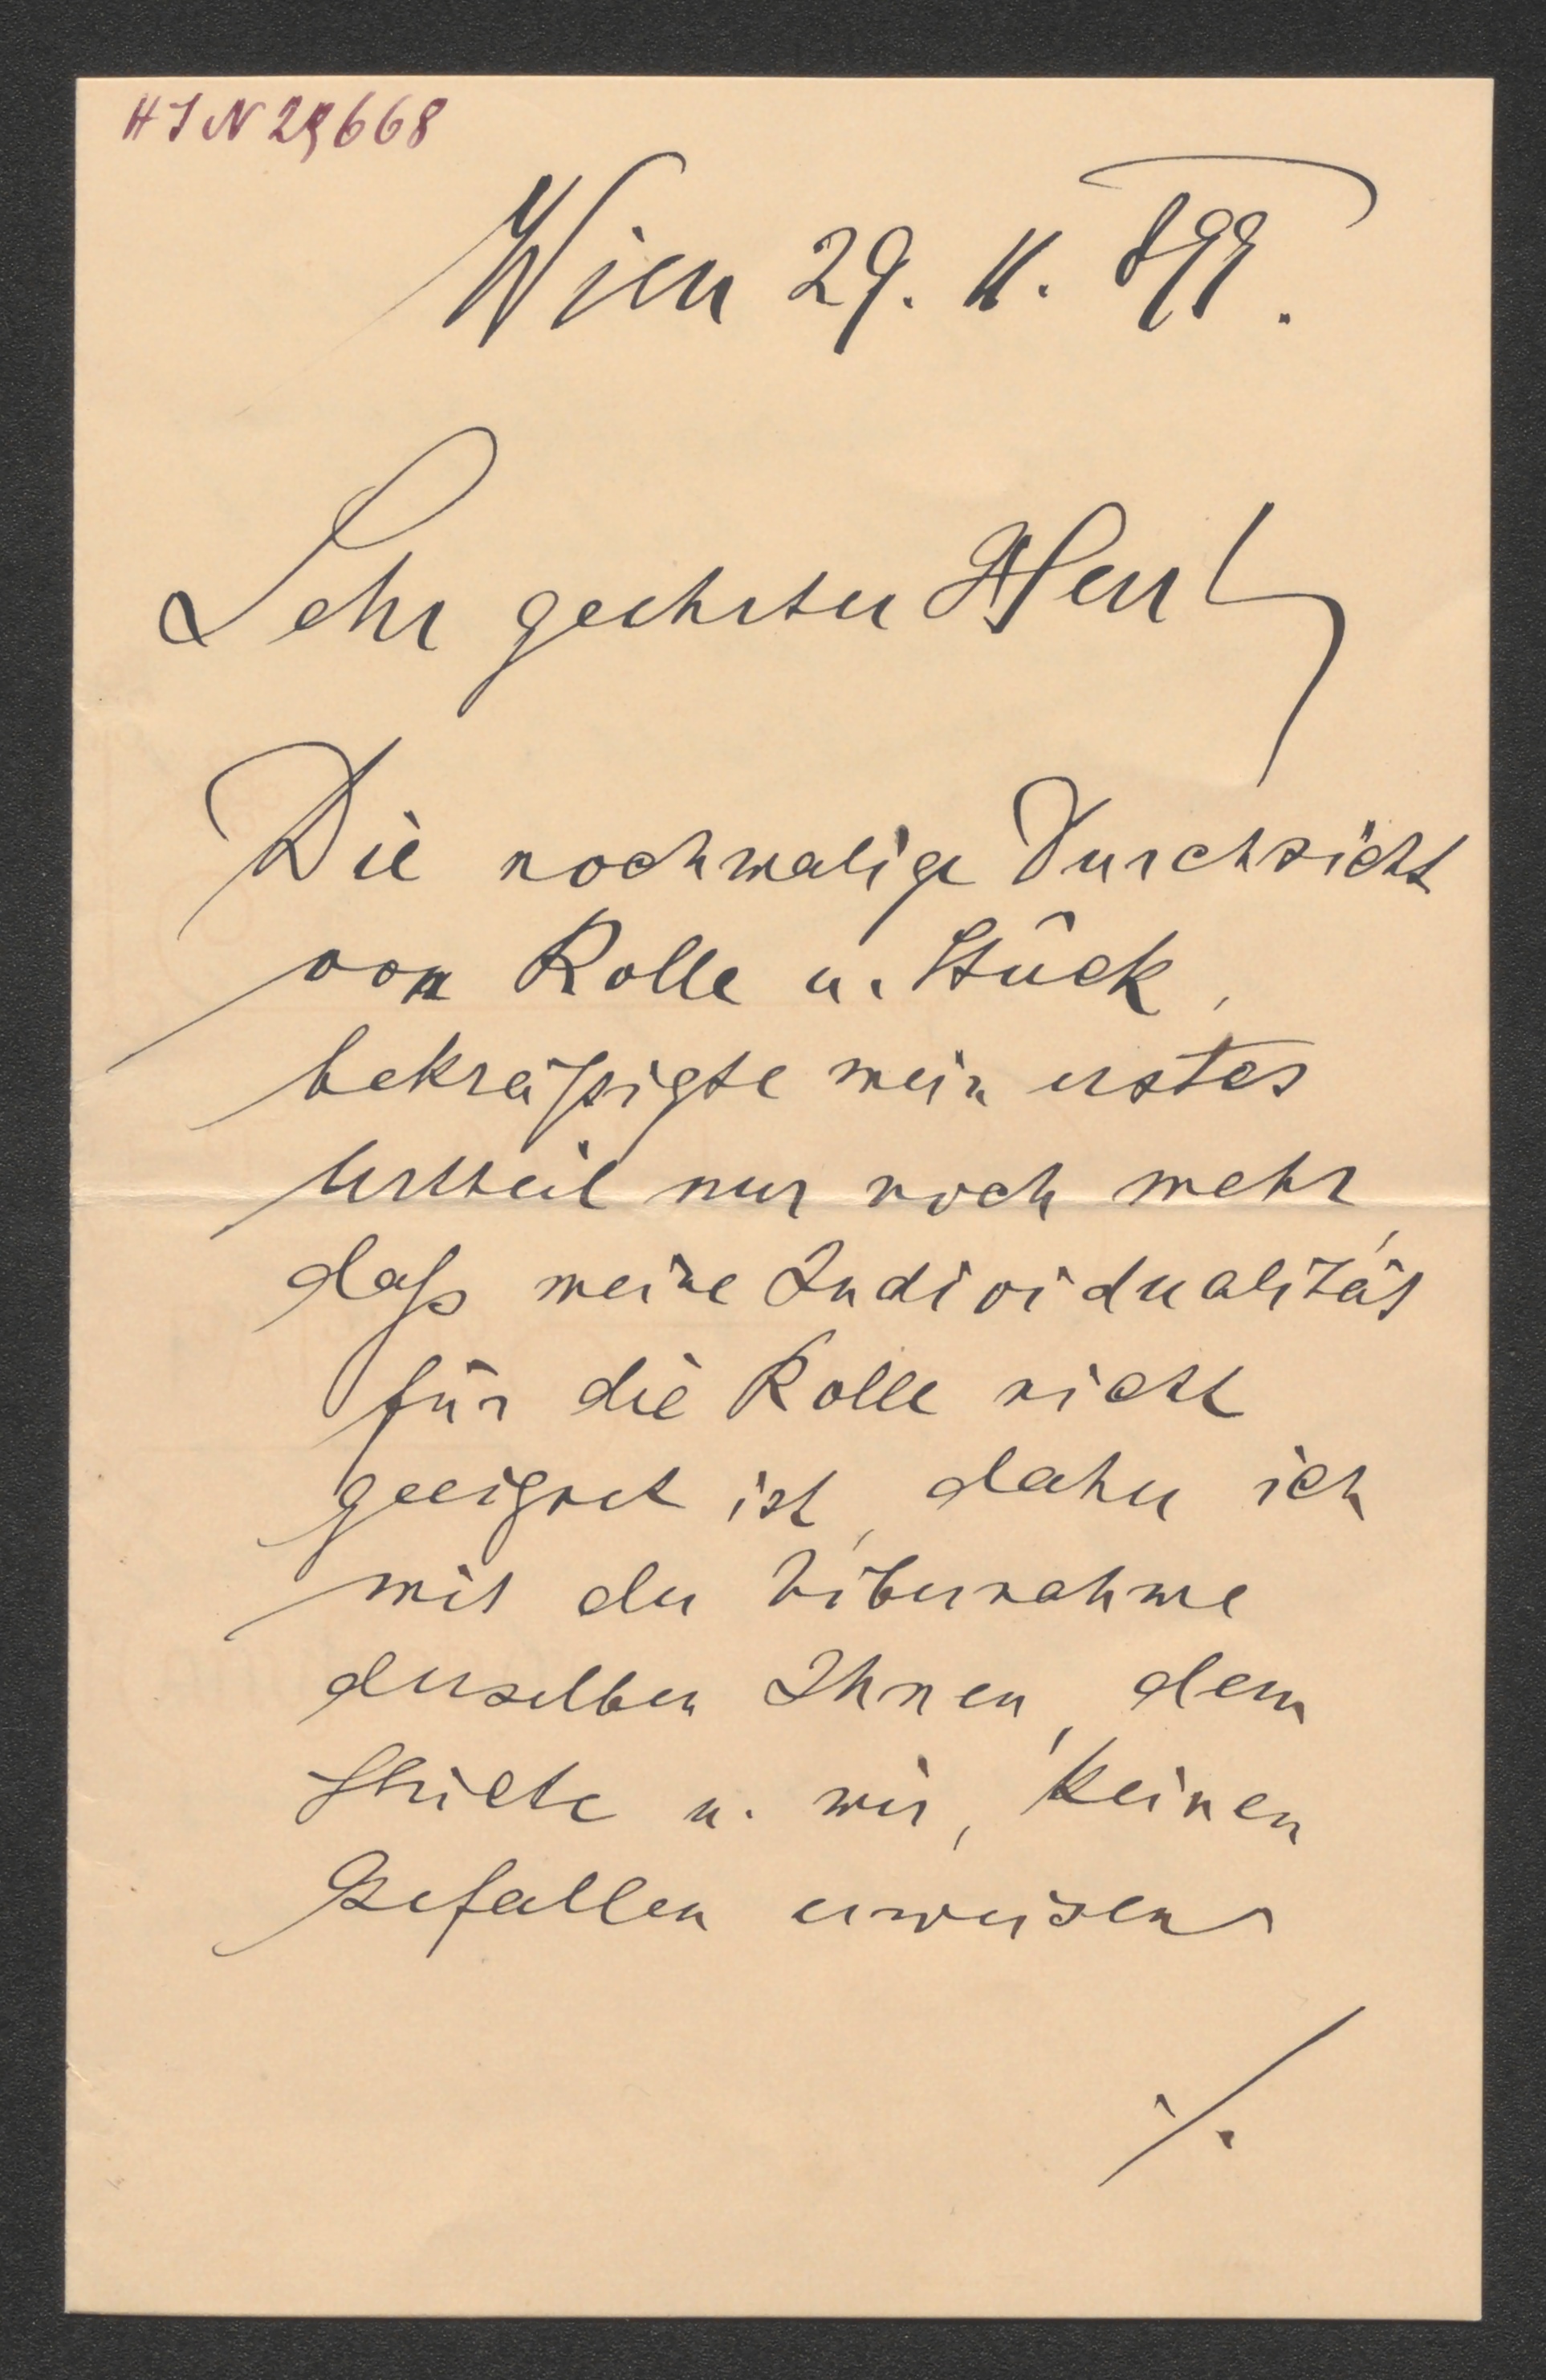 HIN 29668
Wien 29. 11. 899.
Sehr geehrter Herr!
Die nochmalige Durchsicht
von Rolle u. Stück,
bekräftigte mein erstes
Urtheil nur noch mehr,
daß meine Individualität
für die Rolle nicht
geeignet ist, daher ich
mit der Übernahme
derselben Ihnen, dem
Stücke u. mir, keinen
Gefallen erweisen
./.